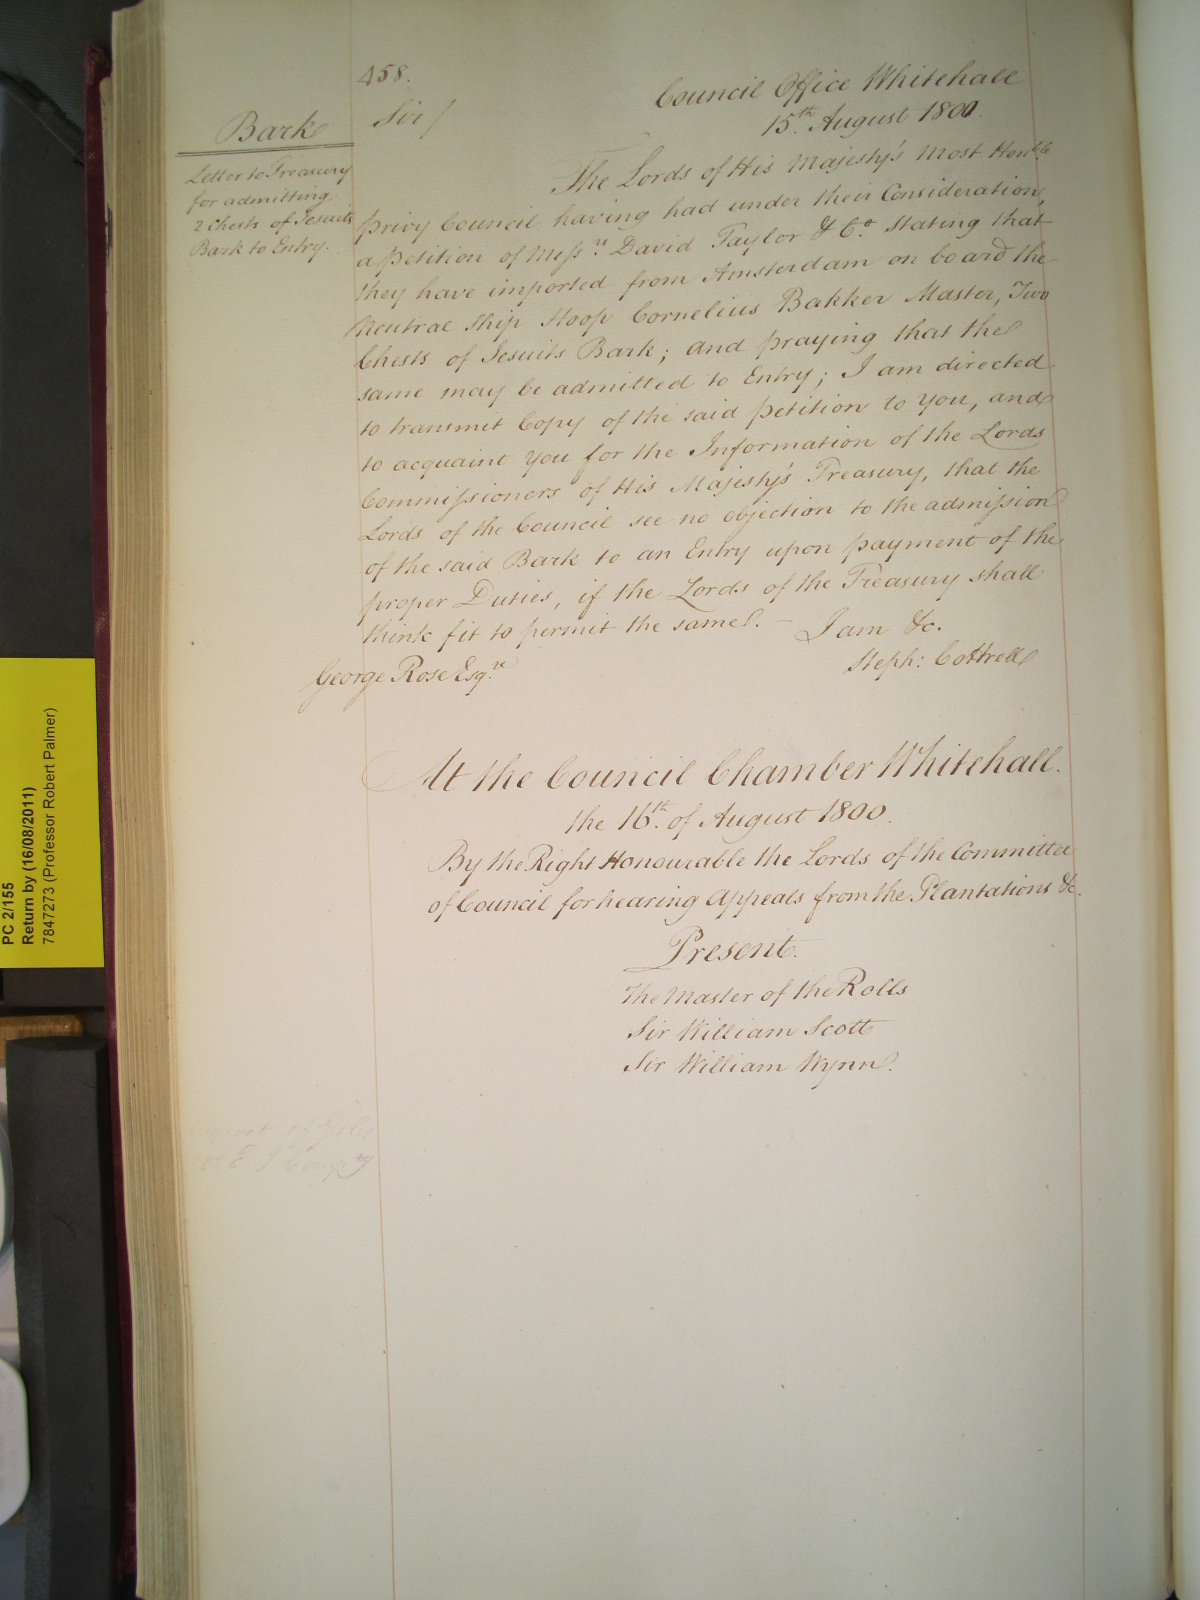 458.
Council Office Whitehall
15th. August 1800.
Bark
Letter to Treasury
for admitting
2 Chests of Jesuits
Bark to Entry.
Sir/
The Lords of His Majesty's Most Honble
privy Council having had under their Consideration,
a petition of Messrs. David Taylor & Co. stating that
they have imported from Amsterdam on board the
Neutral Ship Hoop Cornelius Bakker Master, Two
Chests of Jesuits Bark; and praying that the
same may be admitted to Entry; I am directed
to transmit Copy of the said petition to you, and
to acquaint you for the Information of the Lords
Commissioners of His Majesty's Treasury, that the
Lords of the Council see no objection to the admission
of the said Bark to an Entry upon payment of the
proper Duties, if the Lords of the Treasury shall
think fit to permit the same. - I am &c.
Steph: Cottrell
George Rose Esqre
At the Council Chamber Whitehall.
the 16th. of August 1800.
By the Right Honourable the Lords of the Committee
of Council for hearing Appeals from the Plantations &c.
Present.
The Master of the Rolls
Sir William Scott
Sir William Wynn.
PC 2/155
Return by (16/08/2011)
7847273 (Professor Robert Palmer)